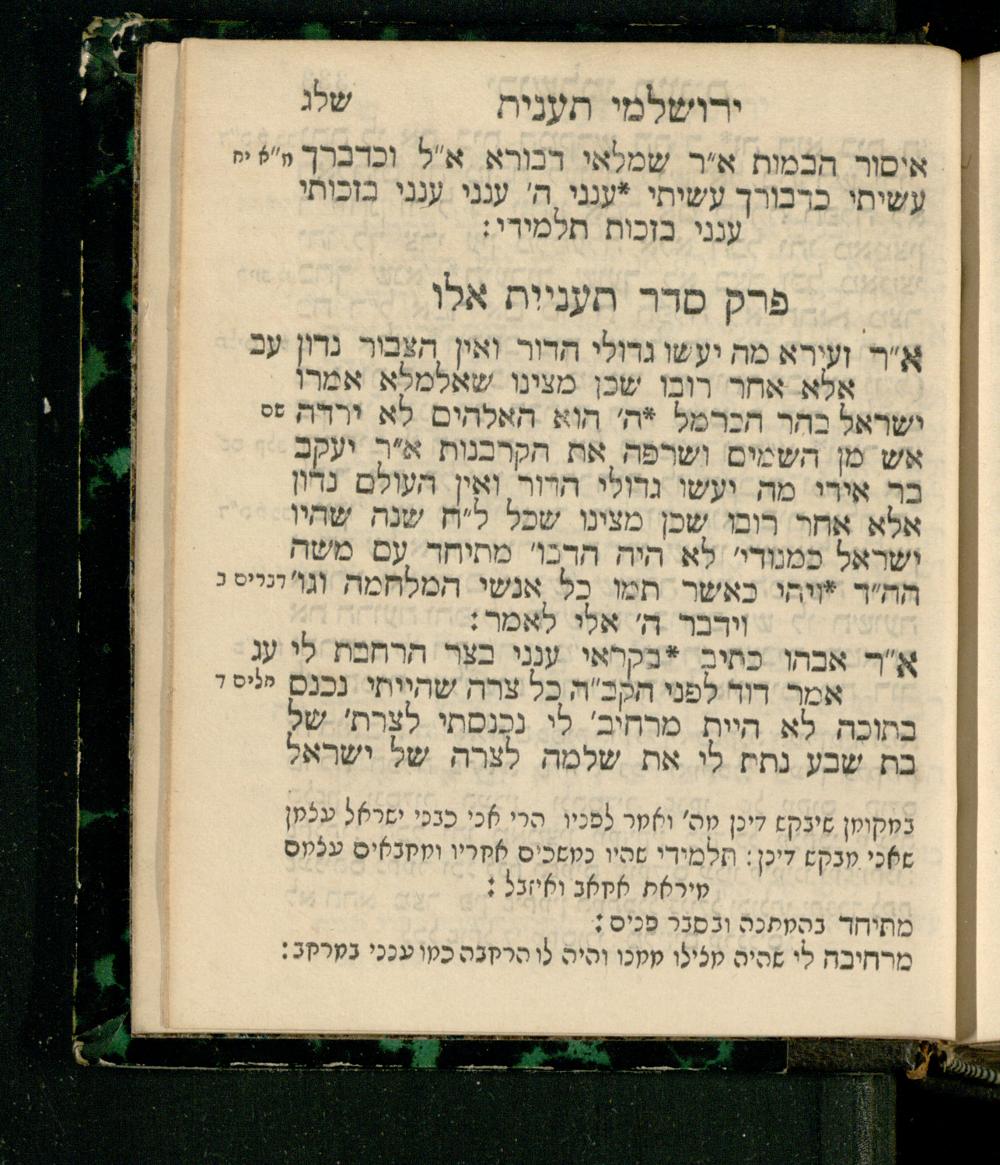 ירושלמי תענית שלג
איסור הבמות א״ר שמלאי דבורא א״ל וכדברך מ״א יח
עשיתי כדבורך עשיתי *ענני ה׳ ענני ענני בזכותי
ענני בזכות תלמידי:
פרק סדר תעניית אלו
א״ר זעירא מה יעשו גדולי הדור ואין הצבור נדון עב
אלא אחר רובו שכן מצינו שאלמלא אמרו
ישראל בהר הכרמל *ה׳ הוא האלהים לא ירדה שם
אש מן השמים ושרפה את הקרבנות א״ר יעקב
בר אידי מה יעשו גדולי הדור ואין העולם נדון
אלא אחר רובו שכן מצינו שכל ל״ח שנה שהיו
ישראל כמנודי׳ לא היה הדבו׳ מתיחד עם משה
הה״ד *ויהי כאשר תמו כל אנשי המלחמה וגו׳ דברים ב
וידבר ה׳ אלי לאמר:
א״ר אבהו כתיב *בקראי ענני בצר הרחבת לי עג
אמר דוד לפני הקב״ה כל צרה שהייתי נכנס תלים ד
בתוכה לא היית מרחיב׳ לי נכנסתי לצרת׳ של
בת שבע נתת לי את שלמה לצרה של ישראל
במקומן שיבקש דיכן מה׳ ואמר לפניו הרי אני כבני ישראל עצמן
שאני מבקש דיכן: תלמידי שהיו נמשכים אחריו ומחבאים עצמם
מיראת אחאב ואיזבל:
מתיחד בהמתנה ובסבר פנים:
מרחיבה לי שהיה מצילו ממנו והיה לו הרחבה כמו ענני במרחב: